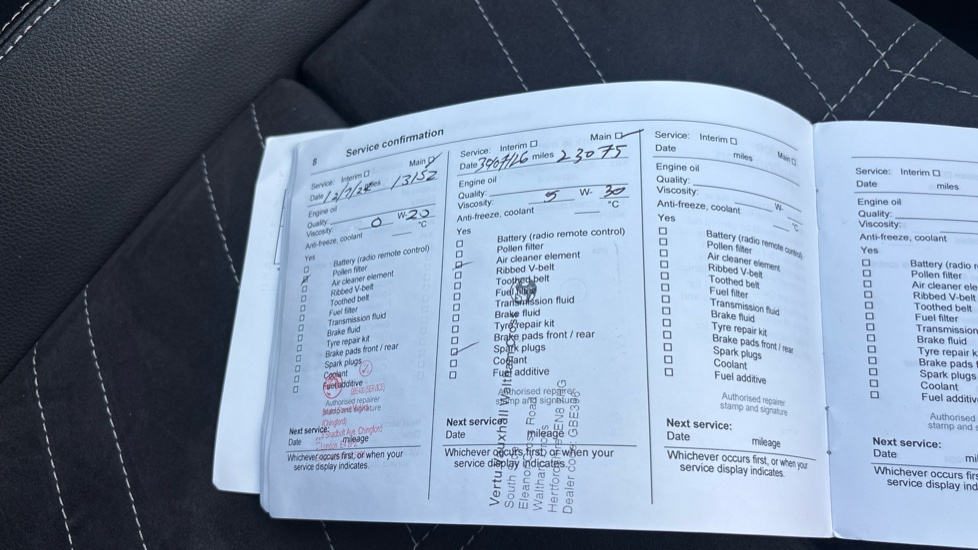 8
Service confirmation
Service: Interim
Main
Date 12/7/24 miles 13152
Engine oil
Quality:
Viscosity: 0 W- 20
Anti-freeze, coolant °C
Yes
Battery (radio remote control)
Pollen filter
Air cleaner element
Ribbed V-belt
Toothed belt
Fuel filter
Transmission fluid
Brake fluid
Tyre repair kit
Brake pads front / rear
Spark plugs
Coolant
Fuel additive
Authorised repairer
stamp and signature
(Chingford)
Chingford
Next service:
Date mileage
Whichever occurs first, or when your
service display indicates.
Service: Interim
Main
Date miles 23075
Engine oil
Quality:
Viscosity: 5 W- 30
Anti-freeze, coolant °C
Yes
Battery (radio remote control)
Pollen filter
Air cleaner element
Ribbed V-belt
Toothed belt
Fuel filter
Transmission fluid
Brake fluid
Tyre repair kit
Brake pads front / rear
Spark plugs
Coolant
Fuel additive
Authorised repairer
stamp and signature
Vertu Vauxhall Waltham Cross
South
Eleanor Road
Waltham
EN8
Dealer code: GBE
Next service:
Date mileage
Whichever occurs first, or when your
service display indicates.
Service: Interim
Main
Date miles
Engine oil
Quality:
Viscosity: W-
Anti-freeze, coolant °C
Yes
Battery (radio remote control)
Pollen filter
Air cleaner element
Ribbed V-belt
Toothed belt
Fuel filter
Transmission fluid
Brake fluid
Tyre repair kit
Brake pads front / rear
Spark plugs
Coolant
Fuel additive
Authorised repairer
stamp and signature
Next service:
Date mileage
Whichever occurs first, or when your
service display indicates.
Service: Interim
Date miles
Engine oil
Quality:
Viscosity:
Anti-freeze, coolant
Yes
Battery (radio r
Pollen filter
Air cleaner ele
Ribbed V-belt
Toothed belt
Fuel filter
Transmission
Brake fluid
Tyre repair k
Brake pads
Spark plugs
Coolant
Fuel additiv
Authorised
stamp and
Next service:
Date mi
Whichever occurs firs
service display ind